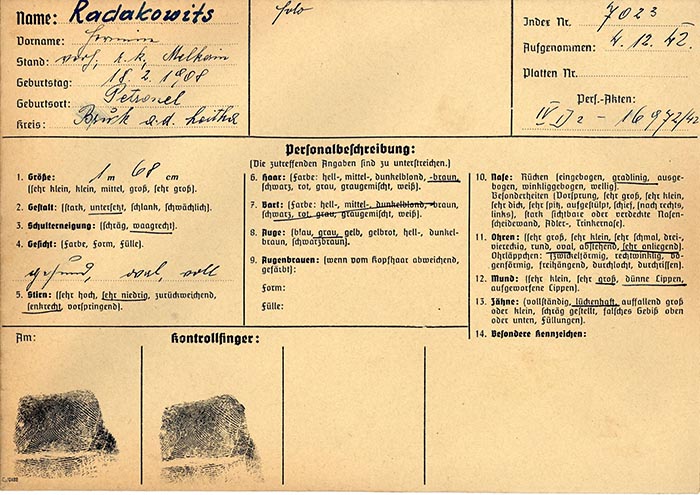 Name: Radakowits
Vorname: Hermine
Stand: verh, r. k,
Geburtstag: 18. 2. 1908
Geburtsort: Petronel
Kreis: Bruk a. d. Leitha
Foto
Index Nr. 7023
Aufgenommen: 4. 12. 42.
Platten Nr.
Pers.-Akten:
16972/42
Personalbeschreibung:
(Die zutreffenden Angaben sind zu unterstreichen.)
1. Größe: 1 m 68 cm
(sehr klein, klein, mittel, groß, sehr groß).
2. Gestalt: (stark, untersetzt, schlank, schwächlich).
3. Schulterneigung: (schräg, waagrecht).
4. Gesicht: (Farbe, Form, Fülle).
gesund, oval, voll
5. Stirn: (sehr hoch, sehr niedrig, zurückweichend,
senkrecht, vorspringend).
6. Haar: (Farbe: hell-, mittel-, dunkelblond, -braun,
schwarz, rot, grau, graugemischt, weiß).
7. Bart: (Farbe: hell-, mittel-, dunkelblond, -braun,
schwarz, rot, grau, graugemischt, weiß).
8. Auge: (blau, grau, gelb, gelbrot, hell-, dunkel-
braun, schwarzbraun).
9. Augenbrauen: (wenn vom Kopfhaar abweichend,
gefärbt):
Form:
Fülle:
10. Nase: Rücken (eingebogen, gradlinig, ausge-
bogen, winkliggebogen, wellig).
Besonderheiten (Vorsprung, sehr groß, sehr klein,
sehr dick, sehr spitz, aufgestülpt, schief, (nach rechts,
links), stark sichtbare oder verdeckte Nasen-
scheidewand, Adler-, Trinkernase).
11. Ohren: (sehr groß, sehr klein, sehr schmal, drei-,
viereckig, rund, oval, abstehend, sehr anliegend).
Ohrläppchen: (zwickelförmig, rechtwinklig, bo-
genförmig, freihängend, durchlocht, durchrissen).
12. Mund: (sehr klein, sehr groß, dünne Lippen,
aufgeworfene Lippen).
13. Zähne: (vollständig, lückenhaft, auffallend groß
oder klein, schräg gestellt, falsches Gebiß oben
oder unten, Füllungen).
14. Besondere Kennzeichen:
Am:
Kontrollfinger: